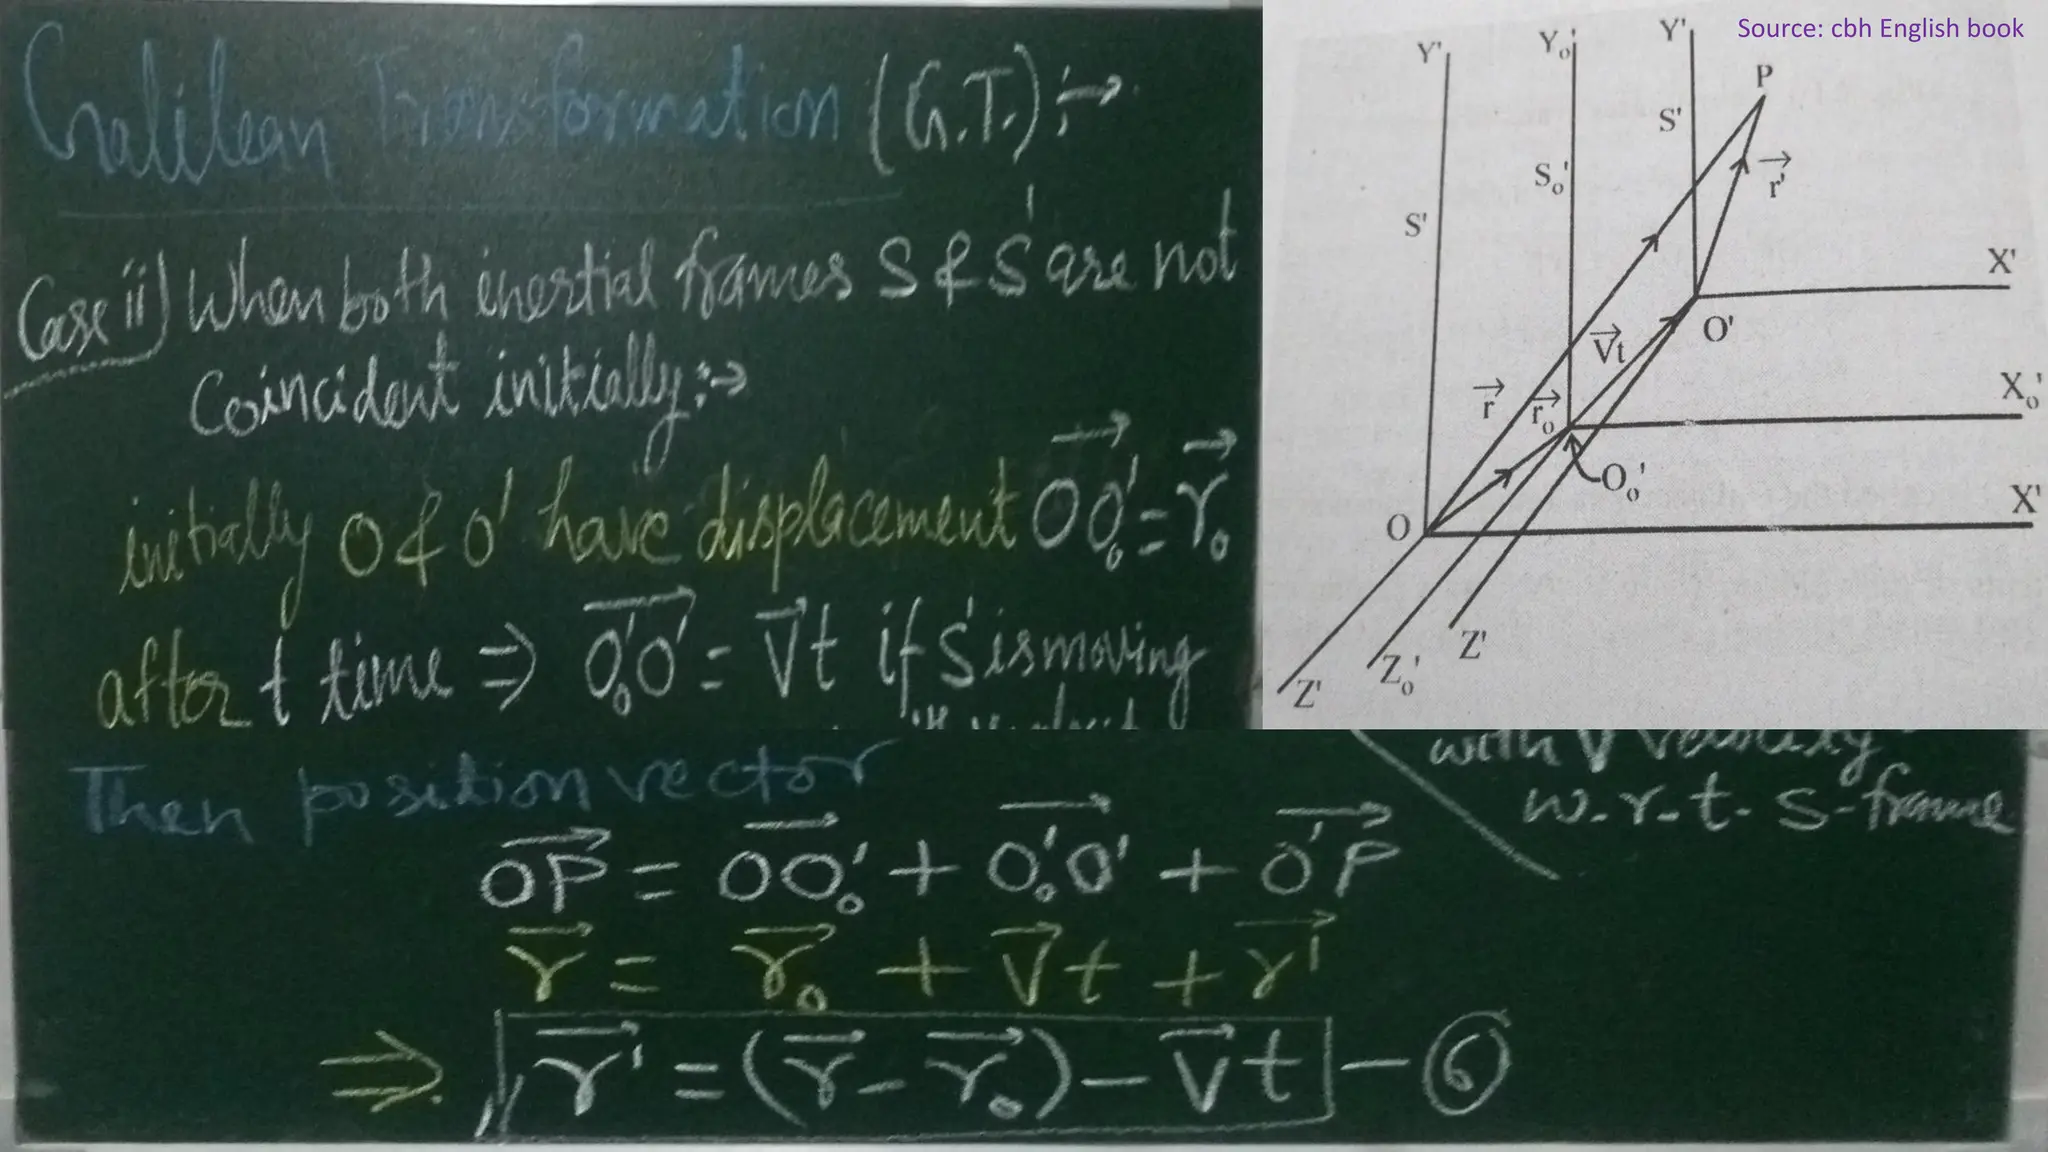 Galilean Transformation (G.T.) :→
Case ii) When both inertial frames S & S' are not
Coincident initially :→
initially O & O' have displacement \overrightarrow{OO_0'} = \vec{r_0}
after t time ⇒ \overrightarrow{O_0'O'} = \vec{V}t if S' is moving
with V velocity
w.r.t. S-frame
Then position vector
\overrightarrow{OP} = \overrightarrow{OO_0'} + \overrightarrow{O_0'O'} + \overrightarrow{O'P}
\vec{r} = \vec{r_0} + \vec{V}t + \vec{r'}
⇒ \vec{r'} = (\vec{r} - \vec{r_0}) - \vec{V}t - ⑥
Source: cbh English book
Y' Y₀' Y'
P
S' S₀' S'
\vec{r'}
X'
O'
\vec{V}t
\vec{r} \vec{r_0}
X₀'
O₀'
X'
O
Z' Z₀' Z'